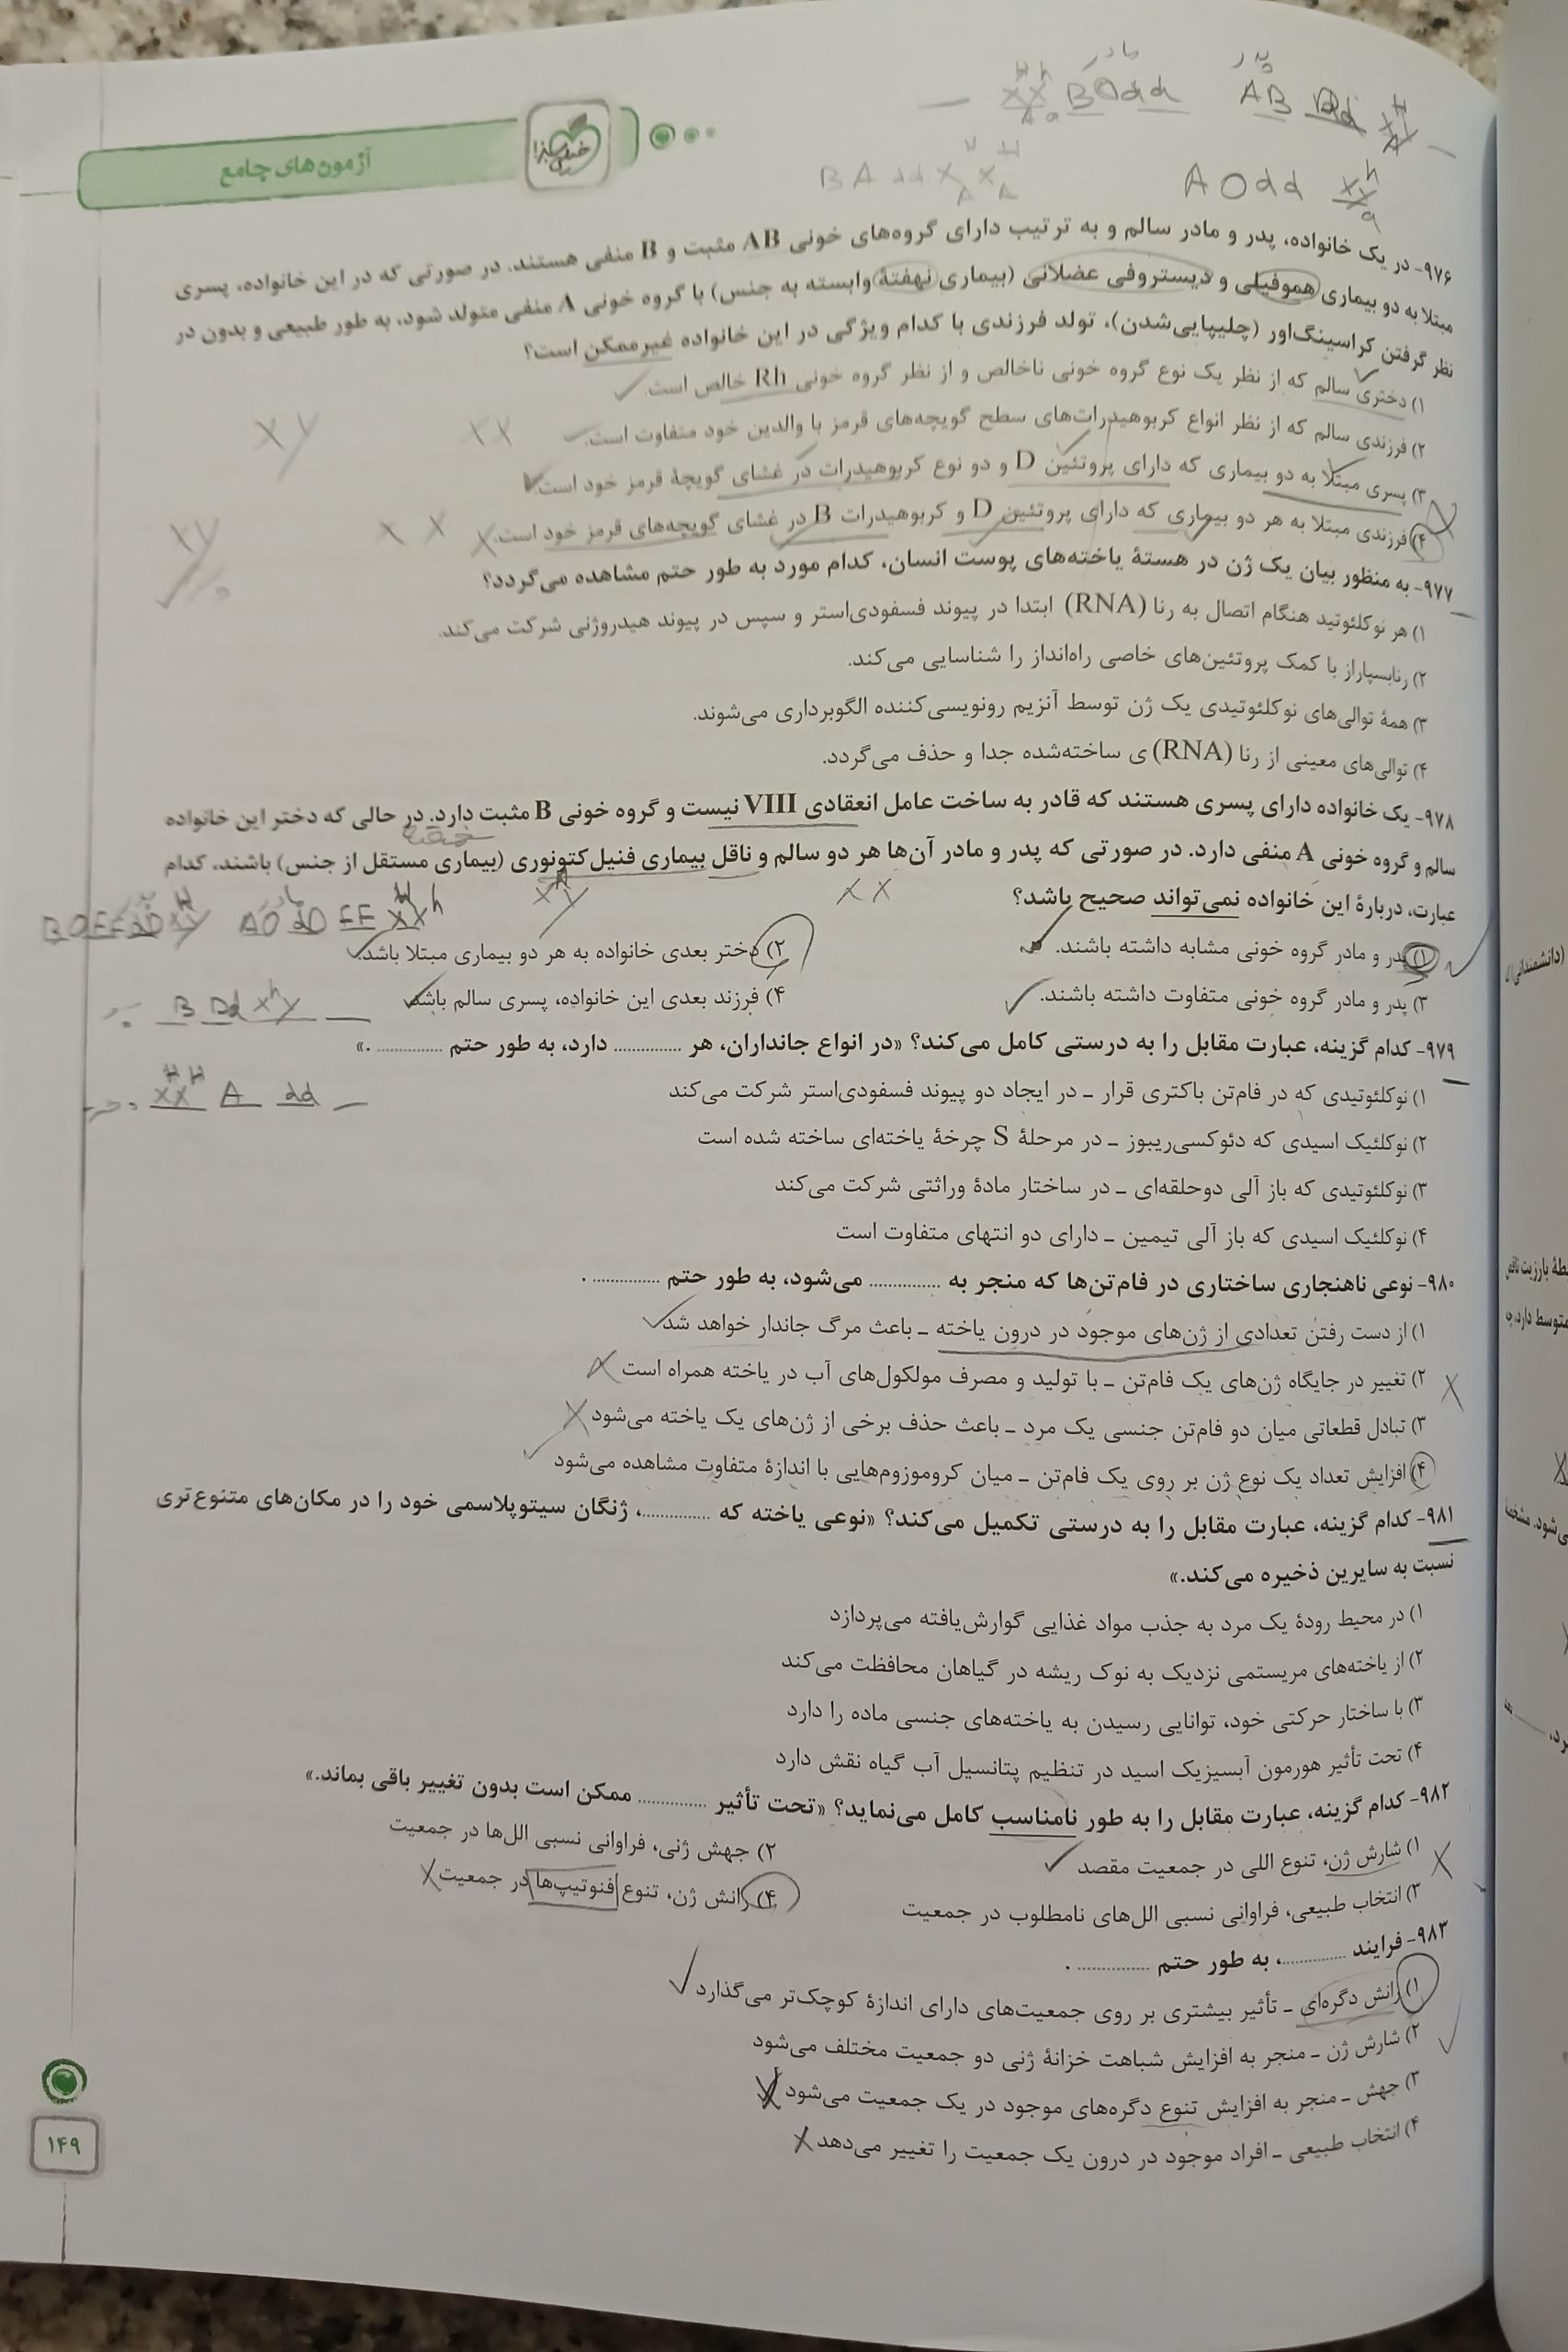 مادر پدر
BOdd AB Dd
BA dd AOdd
آزمون‌های جامع
خیلی سبز
۹۷۶- در یک خانواده، پدر و مادر سالم و به ترتیب دارای گروه‌های خونی AB مثبت و B منفی هستند. در صورتی که در این خانواده، پسری
مبتلا به دو بیماری هموفیلی و دیستروفی عضلانی (بیماری نهفتهٔ وابسته به جنس) با گروه خونی A منفی متولد شود، به طور طبیعی و بدون در
نظر گرفتن کراسینگ‌اور (چلیپایی‌شدن)، تولد فرزندی با کدام ویژگی در این خانواده غیرممکن است؟
۱) دختری سالم که از نظر یک نوع گروه خونی ناخالص و از نظر گروه خونی Rh خالص است.
۲) فرزندی سالم که از نظر انواع کربوهیدرات‌های سطح گویچه‌های قرمز با والدین خود متفاوت است.
۳) پسری مبتلا به دو بیماری که دارای پروتئین D و دو نوع کربوهیدرات در غشای گویچهٔ قرمز خود است.
۴) فرزندی مبتلا به هر دو بیماری که دارای پروتئین D و کربوهیدرات B در غشای گویچه‌های قرمز خود است.
۹۷۷- به منظور بیان یک ژن در هستهٔ یاخته‌های پوست انسان، کدام مورد به طور حتم مشاهده می‌گردد؟
۱) هر نوکلئوتید هنگام اتصال به رنا (RNA) ابتدا در پیوند فسفودی‌استر و سپس در پیوند هیدروژنی شرکت می‌کند.
۲) رنابسپاراز با کمک پروتئین‌های خاصی راه‌انداز را شناسایی می‌کند.
۳) همهٔ توالی‌های نوکلئوتیدی یک ژن توسط آنزیم رونویسی‌کننده الگوبرداری می‌شوند.
۴) توالی‌های معینی از رنا (RNA) ی ساخته‌شده جدا و حذف می‌گردد.
۹۷۸- یک خانواده دارای پسری هستند که قادر به ساخت عامل انعقادی VIII نیست و گروه خونی B مثبت دارد. در حالی که دختر این خانواده
سالم و گروه خونی A منفی دارد. در صورتی که پدر و مادر آن‌ها هر دو سالم و ناقل بیماری فنیل‌کتونوری (بیماری مستقل از جنس) باشند، کدام
عبارت، دربارهٔ این خانواده نمی‌تواند صحیح باشد؟
۱) پدر و مادر گروه خونی مشابه داشته باشند. ۲) دختر بعدی خانواده به هر دو بیماری مبتلا باشد.
۳) پدر و مادر گروه خونی متفاوت داشته باشند. ۴) فرزند بعدی این خانواده، پسری سالم باشد.
۹۷۹- کدام گزینه، عبارت مقابل را به درستی کامل می‌کند؟ «در انواع جانداران، هر .............. دارد، به طور حتم .............. .»
۱) نوکلئوتیدی که در فام‌تن باکتری قرار – در ایجاد دو پیوند فسفودی‌استر شرکت می‌کند
۲) نوکلئیک اسیدی که دئوکسی‌ریبوز – در مرحلهٔ S چرخهٔ یاخته‌ای ساخته شده است
۳) نوکلئوتیدی که باز آلی دوحلقه‌ای – در ساختار مادهٔ وراثتی شرکت می‌کند
۴) نوکلئیک اسیدی که باز آلی تیمین – دارای دو انتهای متفاوت است
۹۸۰- نوعی ناهنجاری ساختاری در فام‌تن‌ها که منجر به .............. می‌شود، به طور حتم .............. .
۱) از دست رفتن تعدادی از ژن‌های موجود در درون یاخته – باعث مرگ جاندار خواهد شد
۲) تغییر در جایگاه ژن‌های یک فام‌تن – با تولید و مصرف مولکول‌های آب در یاخته همراه است
۳) تبادل قطعاتی میان دو فام‌تن جنسی یک مرد – باعث حذف برخی از ژن‌های یک یاخته می‌شود
۴) افزایش تعداد یک نوع ژن بر روی یک فام‌تن – میان کروموزوم‌هایی با اندازهٔ متفاوت مشاهده می‌شود
۹۸۱- کدام گزینه، عبارت مقابل را به درستی تکمیل می‌کند؟ «نوعی یاخته که ..............، ژنگان سیتوپلاسمی خود را در مکان‌های متنوع‌تری
نسبت به سایرین ذخیره می‌کند.»
۱) در محیط رودهٔ یک مرد به جذب مواد غذایی گوارش‌یافته می‌پردازد
۲) از یاخته‌های مریستمی نزدیک به نوک ریشه در گیاهان محافظت می‌کند
۳) با ساختار حرکتی خود، توانایی رسیدن به یاخته‌های جنسی ماده را دارد
۴) تحت تأثیر هورمون آبسیزیک اسید در تنظیم پتانسیل آب گیاه نقش دارد
۹۸۲- کدام گزینه، عبارت مقابل را به طور نامناسب کامل می‌نماید؟ «تحت تأثیر .............. ممکن است بدون تغییر باقی بماند.»
۱) شارش ژن، تنوع اللی در جمعیت مقصد ۲) جهش ژنی، فراوانی نسبی الل‌ها در جمعیت
۳) انتخاب طبیعی، فراوانی نسبی الل‌های نامطلوب در جمعیت ۴) رانش ژن، تنوع فنوتیپ‌ها در جمعیت
۹۸۳- فرایند ..............، به طور حتم .............. .
۱) رانش دگره‌ای – تأثیر بیشتری بر روی جمعیت‌های دارای اندازهٔ کوچک‌تر می‌گذارد
۲) شارش ژن – منجر به افزایش شباهت خزانهٔ ژنی دو جمعیت مختلف می‌شود
۳) جهش – منجر به افزایش تنوع دگره‌های موجود در یک جمعیت می‌شود
۴) انتخاب طبیعی – افراد موجود در درون یک جمعیت را تغییر می‌دهد
۱۴۹